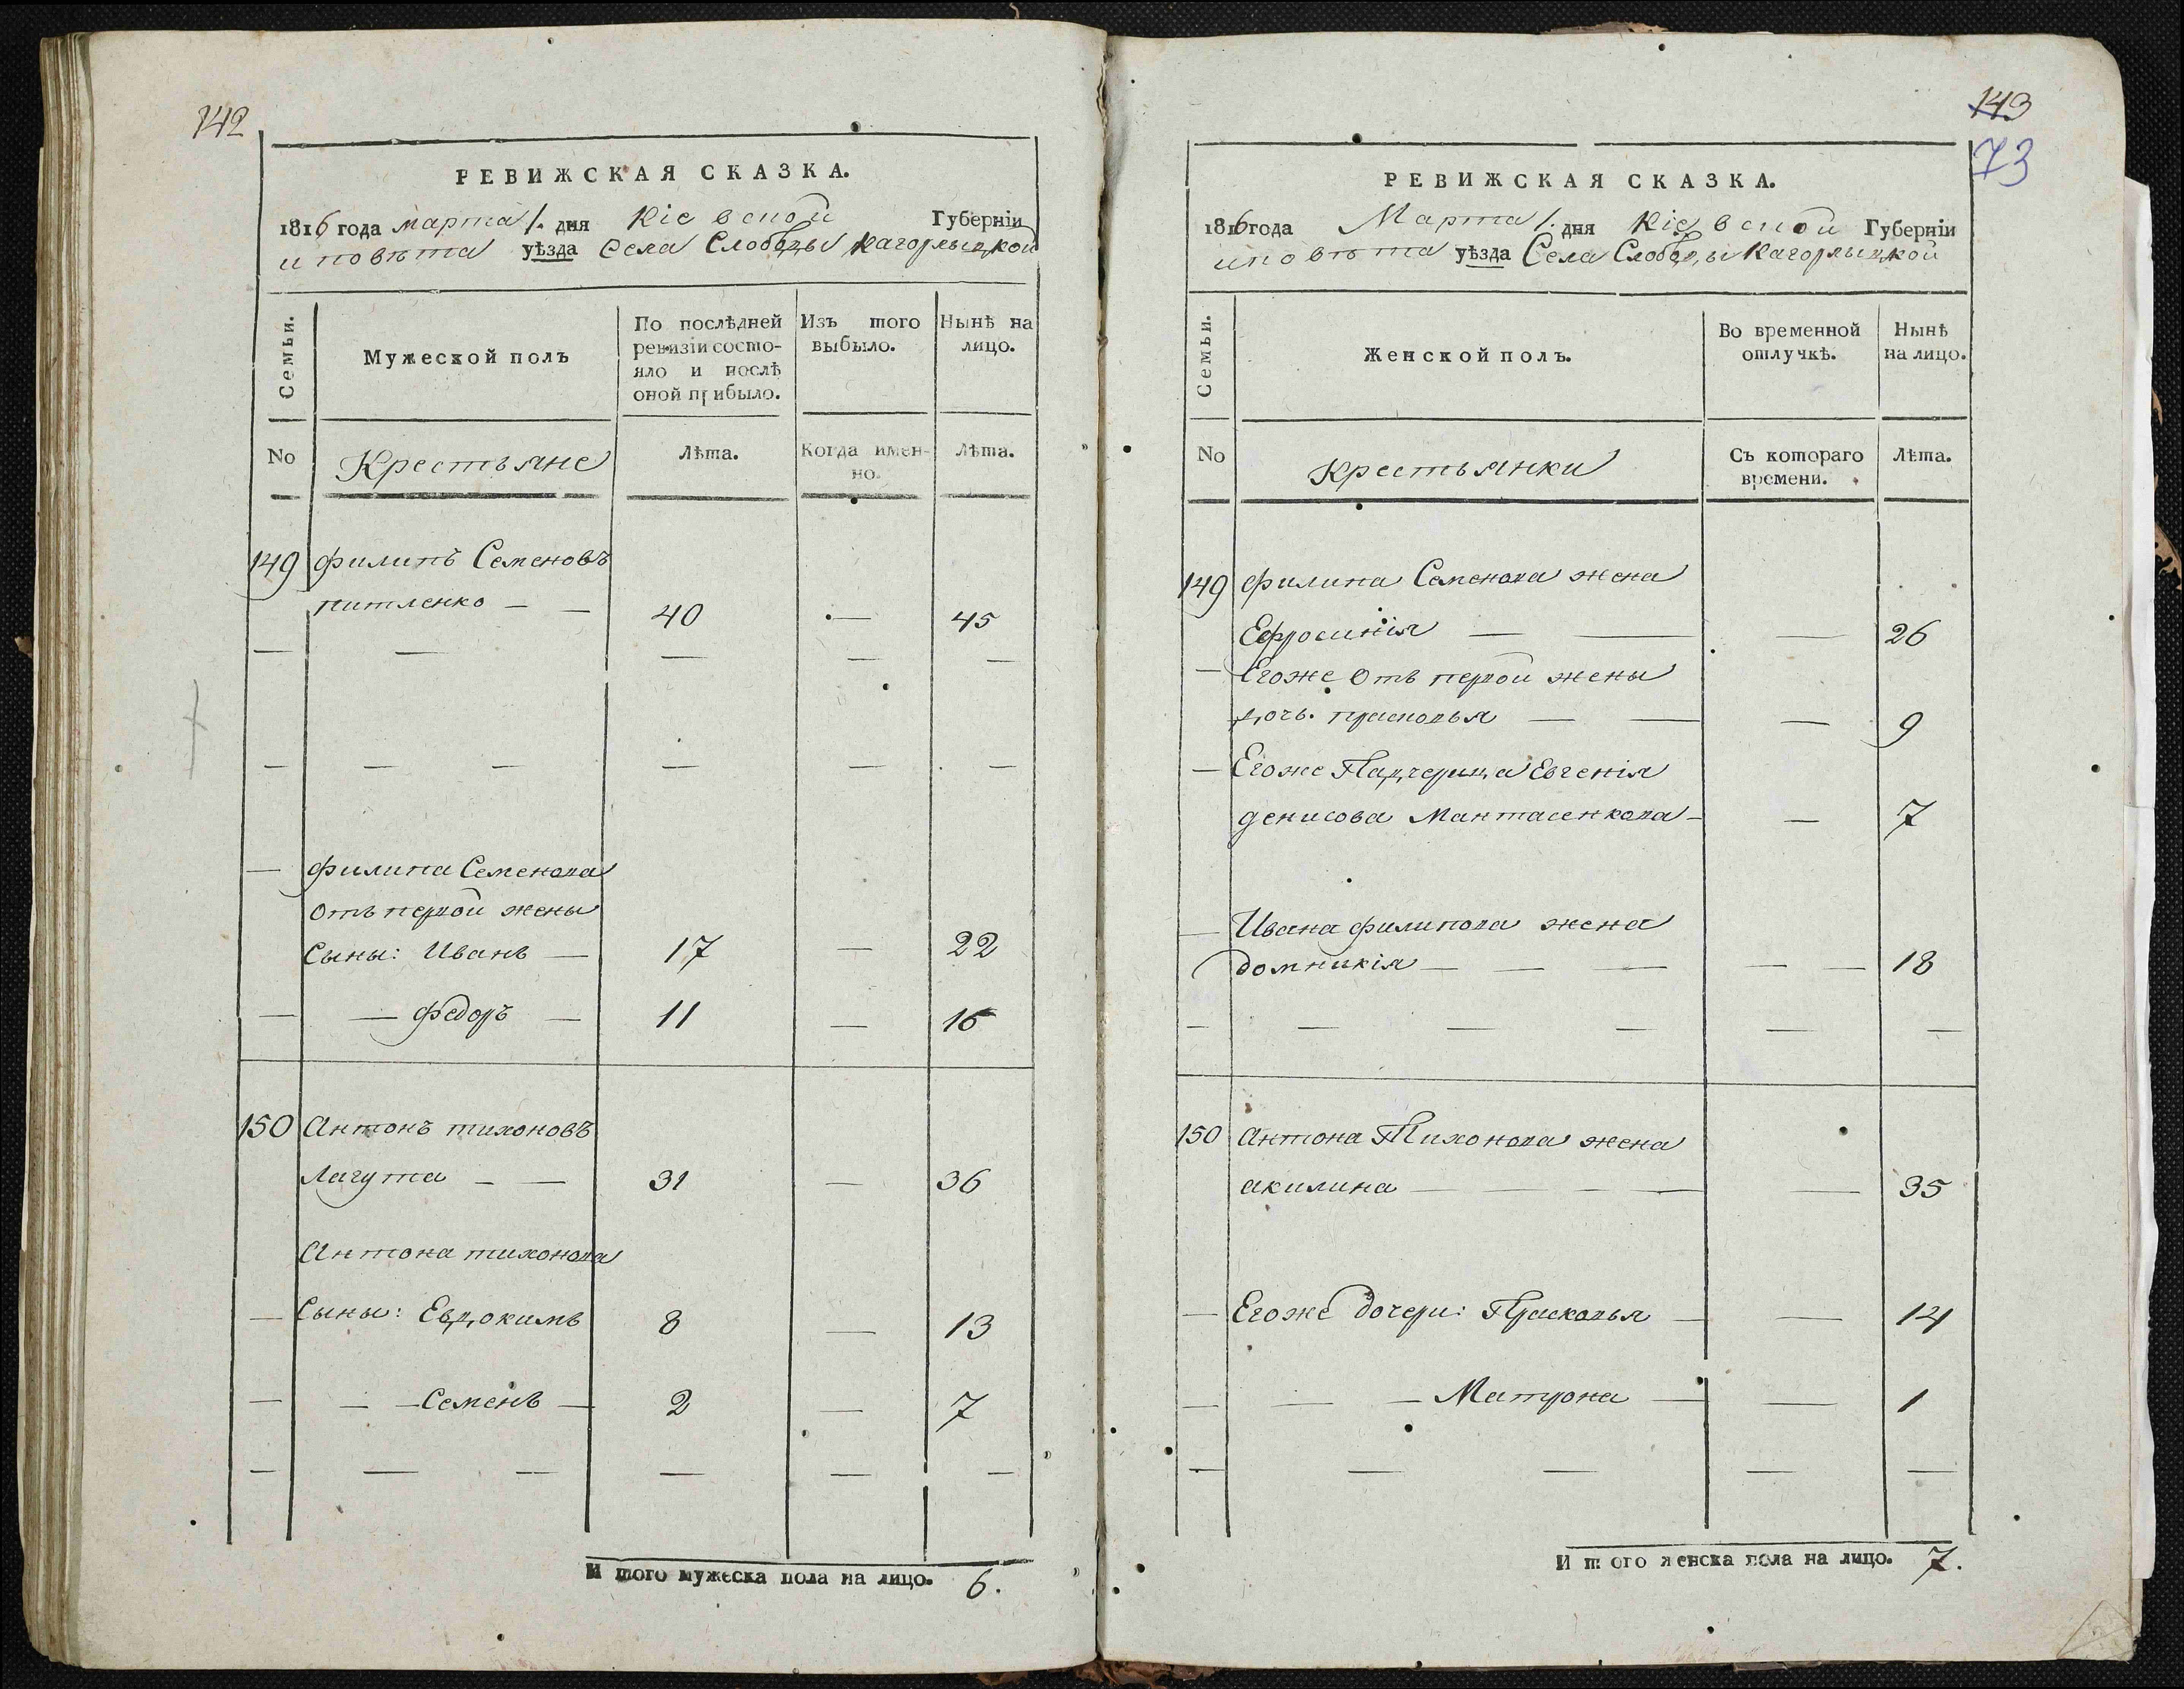 142
РЕВИЖСКАЯ СКАЗКА.
1816 года марта 1. дня Кіевской Губерніи
и повѣта уѣзда Села Слободы Кагорлыцкой
Семьи.
Мужеской полъ
По послѣдней ревизіи состо-
яло и послѣ
оной прибыло.
Изъ того
выбыло.
Нынѣ на
лицо.
No
Крестьяне
Лѣта.
Когда имен-
но.
Лѣта.
149 Филипъ Семеновъ
питленко — — 40 — 45
— Филипа Семенова
Отъ первой жены
Сыны: Иванъ — 17 — 22
— — Федоръ — 11 — 16
150 Антонъ тихоновъ
Лагута — — 31 — 36
Антона тихонова
— Сыны: Евдокимъ 8 — 13
— — Семенъ — 2 — 7
Итого мужеска пола на лицо. 6.
143
73
РЕВИЖСКАЯ СКАЗКА.
1816 года Марта 1. дня Кіевской Губерніи
и повѣта уѣзда Села Слободы Кагорлыцкой
Семьи.
Женской полъ.
Во временной
отлучкѣ.
Нынѣ
на лицо.
No
Крестьянки
Съ котораго
времени.
Лѣта.
149 Филипа Семенова жена
Ефросинія — — — 26
— Егоже Отъ первой жены
дочь. прасковья — — — 9
— Егоже Падчерица Евгенія
денисова Мантасенкова — — 7
— Ивана филипова жена
домникія — — — — — 18
150 Антона Тихонова жена
акилина — — — — — 35
— Егоже дочери: Прасковья — — 14
— — — Матрона — — 1
Итого женска пола на лицо. 7.